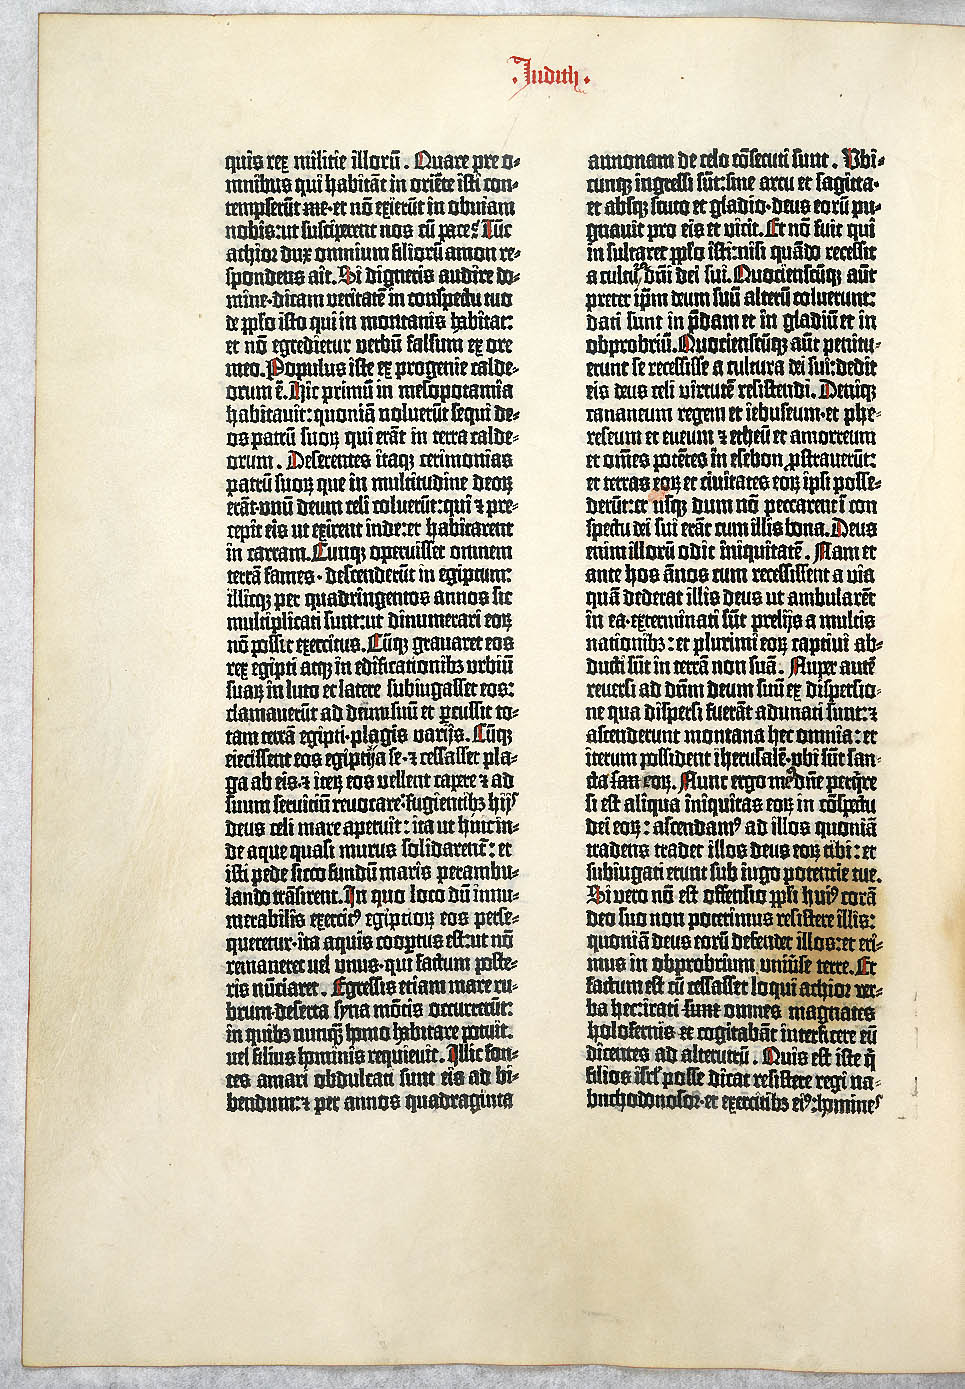 Judith
quis rex militie illorū. Quare pre o-
mnibus qui habitāt in oriēte isti con-
tempserūt me·et nō exierūt in obuiam
nobis:ut susciperent nos cū pace? Tūc
achior dux omnium filiorū amon re-
spondens ait. Si digneris audire do-
mine·dicam veritatē in conspectu tuo
de pplo isto qui in montanis habitat:
et nō egredietur verbū falsum ex ore
meo. Populus iste ex progenie calde-
orum ē. Hic primū in mesopotamia
habitauit:quoniā noluerūt sequi de-
os patrū suoꝝ qui erāt in terra calde-
orum. Deserentes itaqꝫ cerimonias
patrū suoꝝ que in multitudine deoꝝ
erāt·unū deum celi coluerūt:qui ⁊ pre-
cepit eis ut exirent inde:et habitarent
in carram. Cunqꝫ operuisset omnem
terrā fames·descenderūt in egiptum:
illicqꝫ per quadringentos annos sic
multiplicati sunt:ut dinumerari eoꝝ
nō posset exercitus. Cūqꝫ grauaret eos
rex egipti atqꝫ in edificationibꝫ urbiū
suaꝝ in luto et latere subiugasset eos:
clamauerūt ad deum suū et ꝑcussit to-
tam terrā egipti·plagis varijs. Cūqꝫ
eiecissent eos egiptija se·⁊ cessasset pla-
ga ab eis·⁊ iteꝝ eos vellent capere ⁊ ad
suum seruiciū reuocare:fugientibꝫ hijs
deus celi mare aperuit: ita ut hinc in-
de aque quasi murus solidarent̄: et
isti pede sicco fundū maris perambu-
lando trāsirent. In quo loco dū innu-
merabilis exercitꝰ egiptioꝝ eos perse-
queretur·ita aquis cooptus est:ut nō
remaneret uel vnus·qui factum poste-
ris nūciaret. Egressis etiam mare ru-
brum·deserta syna mōtis occuperūt:
in quibꝫ nunqꝫ homo habitare potuit·
uel filius hominis requieuit. Illic fon-
tes amari obdulcati sunt eis ad bi-
bendum:⁊ per annos quadraginta
annonam de celo cōsecuti sunt. Vbi-
cunqꝫ ingressi sūt:sine arcu et sagitta·
et absqꝫ scuto et gladio·deus eorū pu-
gnauit pro eis et vicit. Et nō fuit qui
in sultaret pplo isti:nisi quādo recessit
a cultu dn̄i dei sui. Quocienscūqꝫ aūt
preter ip̄m deum suū alterū coluerunt:
dati sunt in p̄dam et in gladiū et in
obprobriū. Quocienscūqꝫ aūt penitu-
erunt se recessisse a cultura dei sui:dedit
eis deus celi virtutē resistendi. Deniqꝫ
cananeum regem et iebuseum·et phe-
reseum et eueum ⁊ etheū et amorreum
et om̄es potētes in esebon ꝓstrauerūt:
et terras eoꝝ et ciuitates eoꝝ ipsi posse-
derūt:et usqꝫ dum nō peccarent ī con
spectu dei sui erāt cum illis bona. Deus
enim illorū odit iniquitatē. Nam et
ante hos ānos cum recessissent a via
quā dederat illis deus ut ambularēt
in ea·exterminati sūt prelijs a multis
nationibꝫ: et plurimi eoꝝ captiui ab-
ducti sūt in terrā non suā. Nuper autē
reuersi ad dn̄m deum suū ex dispersio-
ne qua dispersi fuerāt adunati sunt:⁊
ascenderunt montana hec omnia: et
iterum possident iherusalē·vbi sūt san-
cta san eoꝝ. Nunc ergo me dn̄e perq̄re
si est aliqua iniquitas eoꝝ in cōspectu
dei eoꝝ: ascendamꝰ ad illos quoniā
tradens tradet illos deus eoꝝ tibi: et
subiugati erunt sub iugo potentie tue.
Si vero nō est offensio ppli huiꝰ corā
deo suo non poterimus resistere illis:
quoniā deus eorū defendet illos:et eri-
mus in obprobrium uniūse terre. Et
factum est cū cessasset loqui achior ver-
ba hec:irati sunt omnes magnates
holofernis et cogitabāt interficere eū
dicentes ad alterutrū. Quis est iste q̄
filios isrl posse dicat resistere regi na-
buchodonosor·et exercitibꝫ eiꝰ:homines